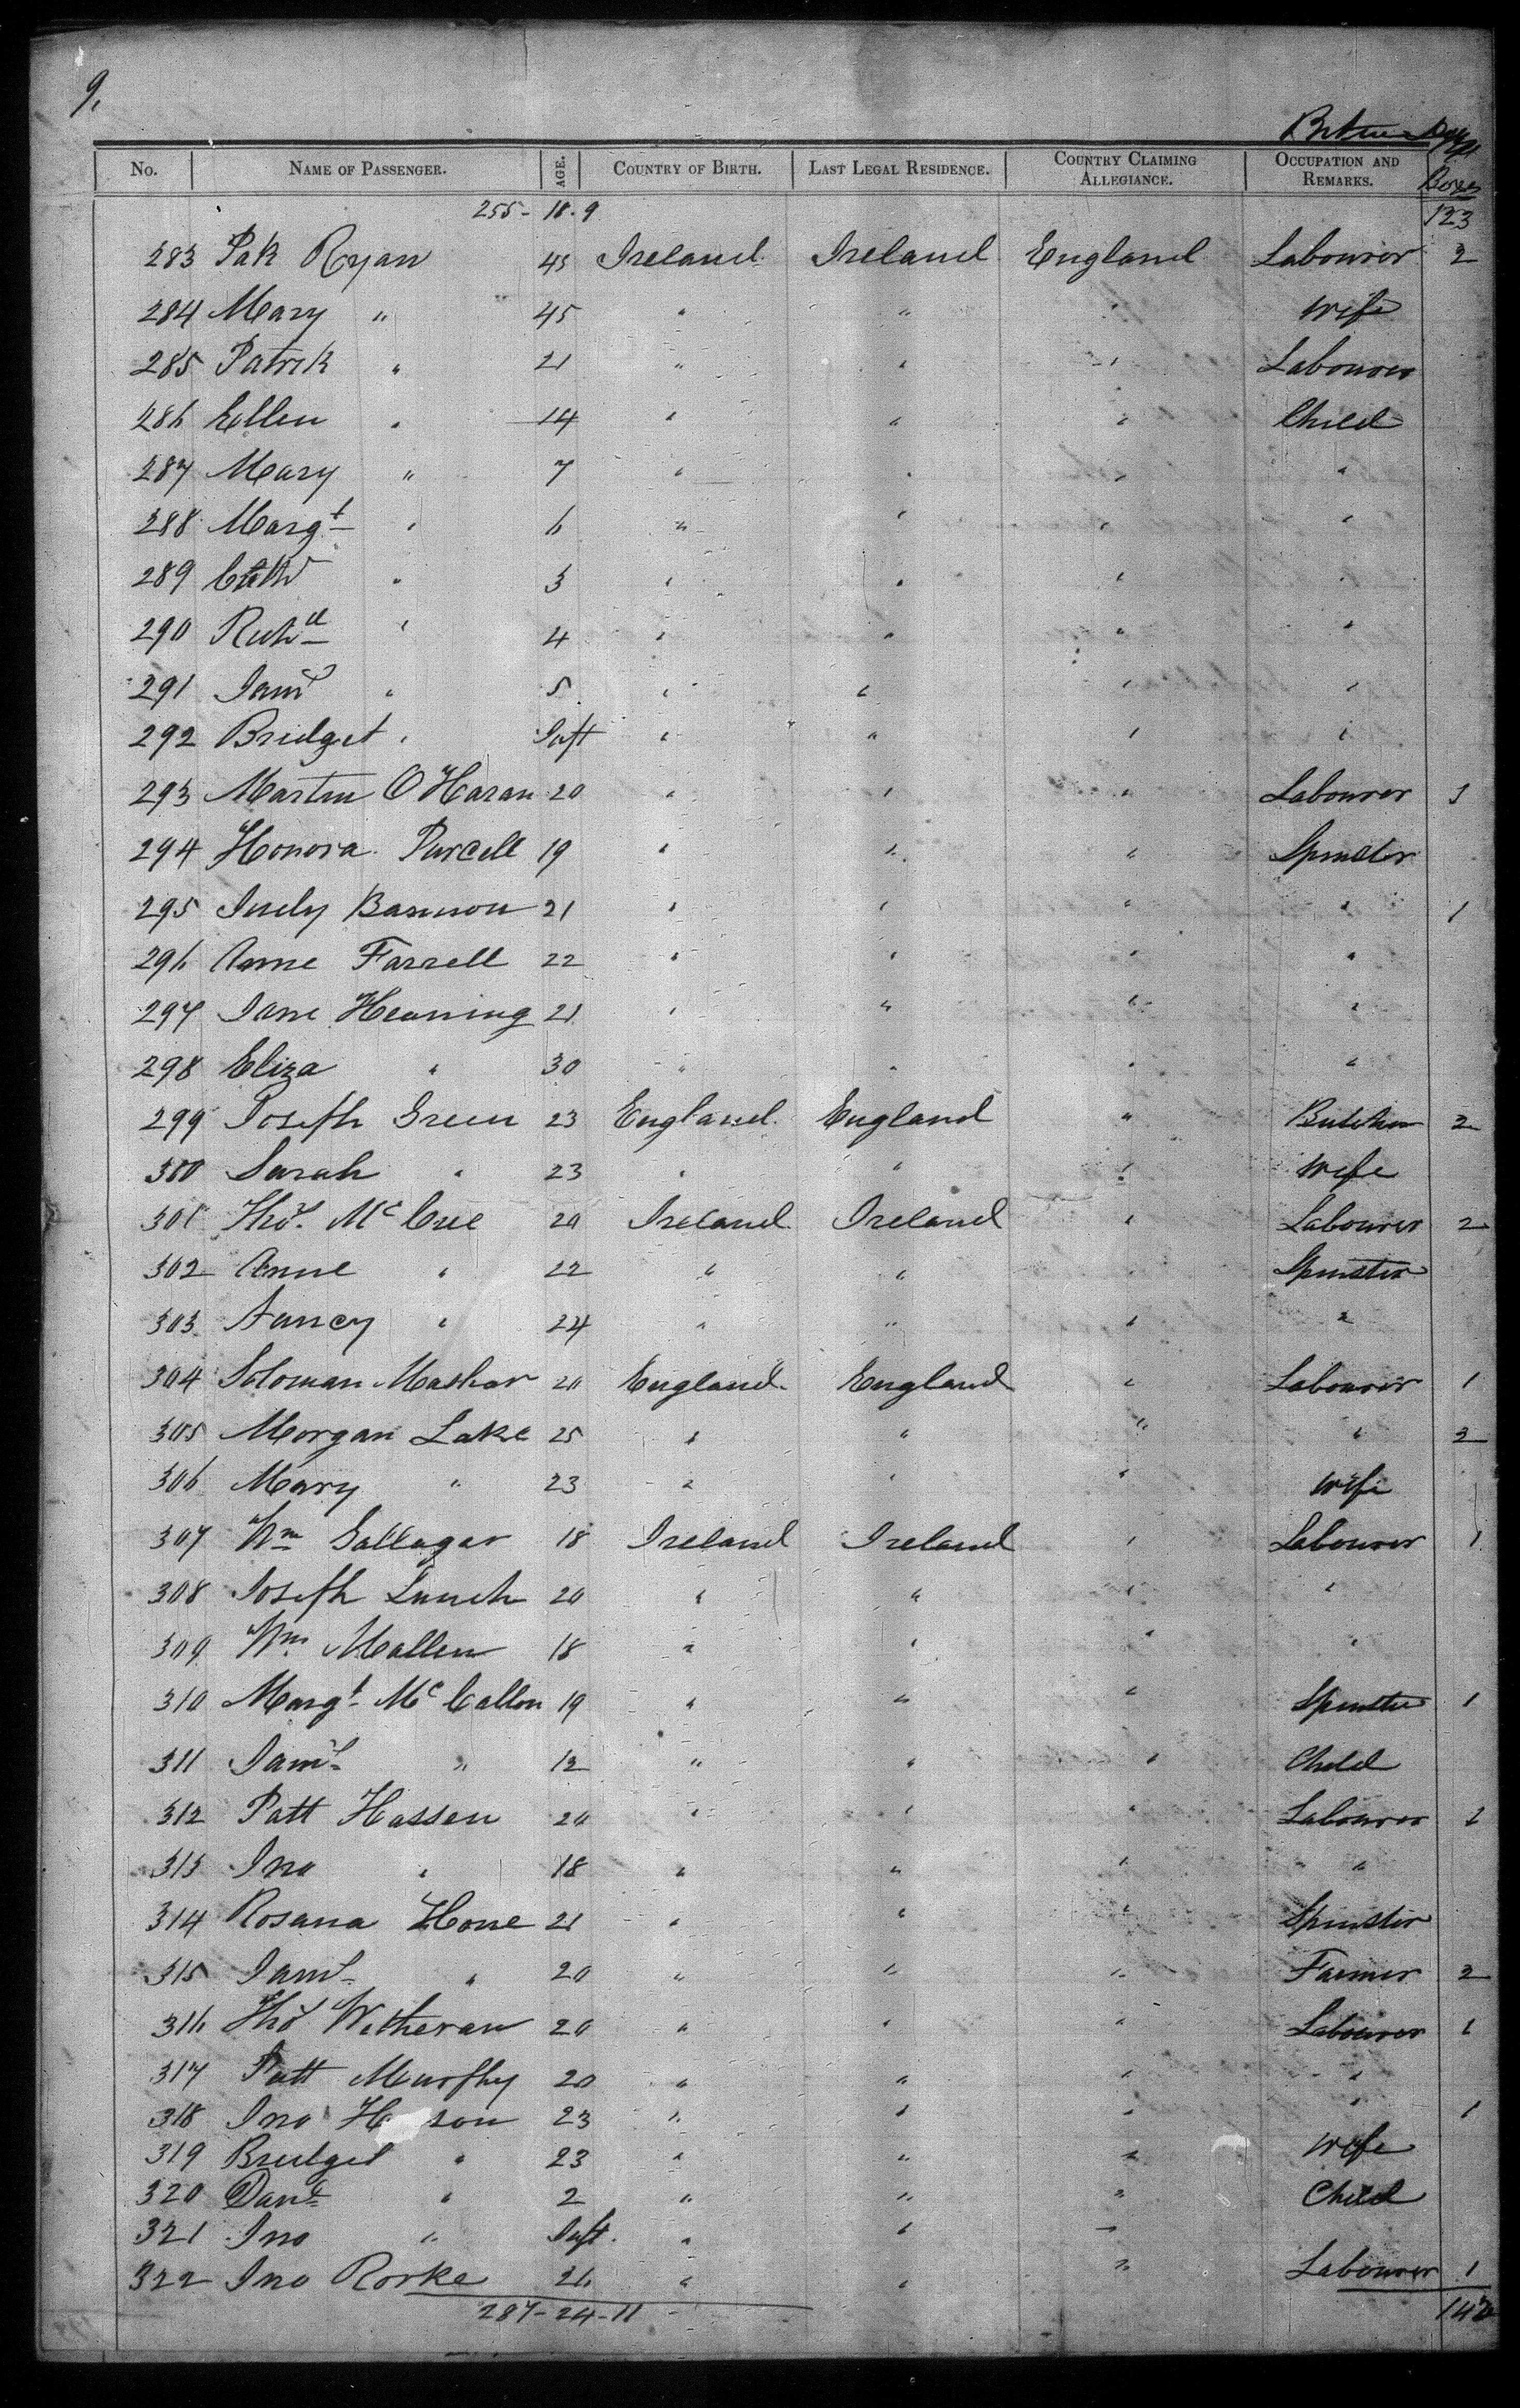 9.
No. NAME OF PASSENGER. AGE. COUNTRY OF BIRTH. LAST LEGAL RESIDENCE. COUNTRY CLAIMING ALLEGIANCE. OCCUPATION AND REMARKS. Boxes
255 - 18 . 9 123
283 Pak Ryan 45 Ireland Ireland England Labourer 2
284 Mary " 45 " " " Wife
285 Patrick " 21 " " " Labourer
286 Ellen " 14 " " " Child
287 Mary " 7 " " " "
288 Margt " 6 " " " "
289 Cath " 3 " " " "
290 Richd " 4 " " " "
291 Jams " 5 " " " "
292 Bridget " Inft " " " "
293 Martin O'Haran 20 " " " Labourer 1
294 Honora Purcell 19 " " " Spinster
295 Judy Bannon 21 " " " " 1
296 Anne Farrell 22 " " " "
297 Jane Henning 21 " " " "
298 Eliza " 30 " " " "
299 Joseph Green 23 England England " Butcher 2
300 Sarah " 23 " " " Wife
301 Thos. McCue 20 Ireland Ireland " Labourer 2
302 Anne " 22 " " " Spinster
303 Nancy " 24 " " " "
304 Soloman Mashar 20 England England " Labourer 1
305 Morgan Lake 25 " " " " 2
306 Mary " 23 " " " Wife
307 Wm Gallagar 18 Ireland Ireland " Labourer 1
308 Joseph Lunch 20 " " " "
309 Wm Mallen 18 " " " "
310 Margt McCallon 19 " " " Spinster 1
311 Jams " 12 " " " Child
312 Patt Hassen 20 " " " Labourer 1
313 Jno " 18 " " " "
314 Rosana Hone 21 " " " Spinster
315 Jams " 20 " " " Farmer 2
316 Thos Witheran 20 " " " Labourer 1
317 Patt Murphy 20 " " " "
318 Jno 23 " " " " 1
319 Bridget " 23 " " " Wife
320 Danl " 2 " " " Child
321 Jno " Inft. " " "
322 Jno Rorke 26 " " " Labourer 1
287 - 24 - 11